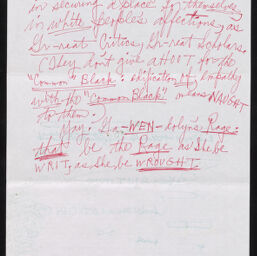 in securing a place for themselves
in white people's affections, as
Gr-reat Critics, Gr-reat Scholars.
(They don't give a HOOT for the
"Common" Black: edification of, empathy
with the "Common Black" means NAUGHT
to them.)
May: Gwa-WEN-dolyn's Rage:
that be the Rage as She be
WRIT, as She be WROUGHT.